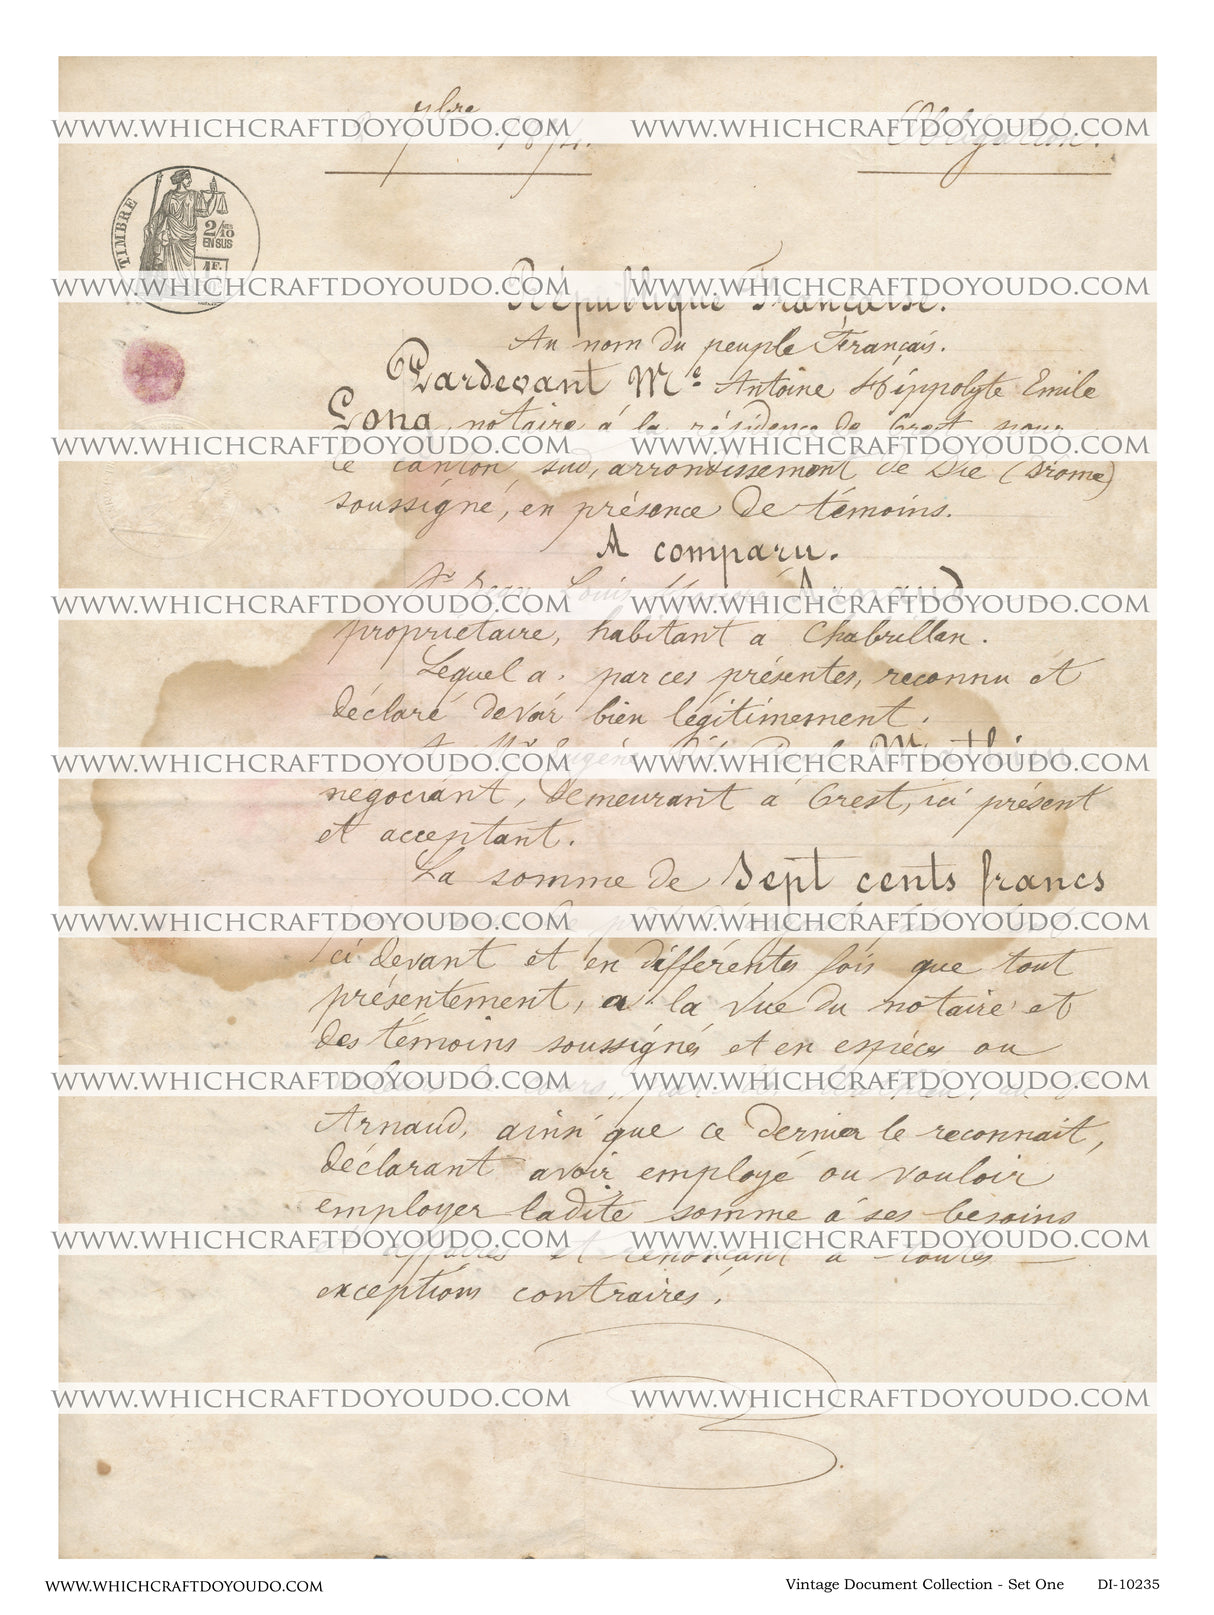 7bre 1874.
Obligation.
TIMBRE
2/10
EN SUS
1F.
WWW.WHICHCRAFTDOYOUDO.COM WWW.WHICHCRAFTDOYOUDO.COM
WWW.WHICHCRAFTDOYOUDO.COM WWW.WHICHCRAFTDOYOUDO.COM
République Française.
Au nom du peuple Français.
Pardevant Me Antoine Hippolyte Emile
Long, notaire à la résidence de Crest pour
WWW.WHICHCRAFTDOYOUDO.COM WWW.WHICHCRAFTDOYOUDO.COM
le canton sud, arrondissement de Die (Drôme)
soussigné, en présence de témoins.
A comparu.
Sr Jean Louis Arnaud
WWW.WHICHCRAFTDOYOUDO.COM WWW.WHICHCRAFTDOYOUDO.COM
propriétaire, habitant à Chabrillan.
Lequel a, par ces présentes, reconnu et
déclaré devoir bien légitimement.
A Mr Eugène Mathieu
WWW.WHICHCRAFTDOYOUDO.COM WWW.WHICHCRAFTDOYOUDO.COM
négociant, demeurant à Crest, ici présent
et acceptant.
La somme de Sept cents francs
WWW.WHICHCRAFTDOYOUDO.COM WWW.WHICHCRAFTDOYOUDO.COM
ci devant et en différentes fois que tout
présentement, a la vue du notaire et
des témoins soussignés et en espèces ou
WWW.WHICHCRAFTDOYOUDO.COM WWW.WHICHCRAFTDOYOUDO.COM
Arnaud, ainsi que ce dernier le reconnait,
déclarant avoir employé ou vouloir
employer ladite somme à ses besoins
et affaires et renonçant à toutes
WWW.WHICHCRAFTDOYOUDO.COM WWW.WHICHCRAFTDOYOUDO.COM
exceptions contraires.
WWW.WHICHCRAFTDOYOUDO.COM WWW.WHICHCRAFTDOYOUDO.COM
WWW.WHICHCRAFTDOYOUDO.COM Vintage Document Collection - Set One DI-10235